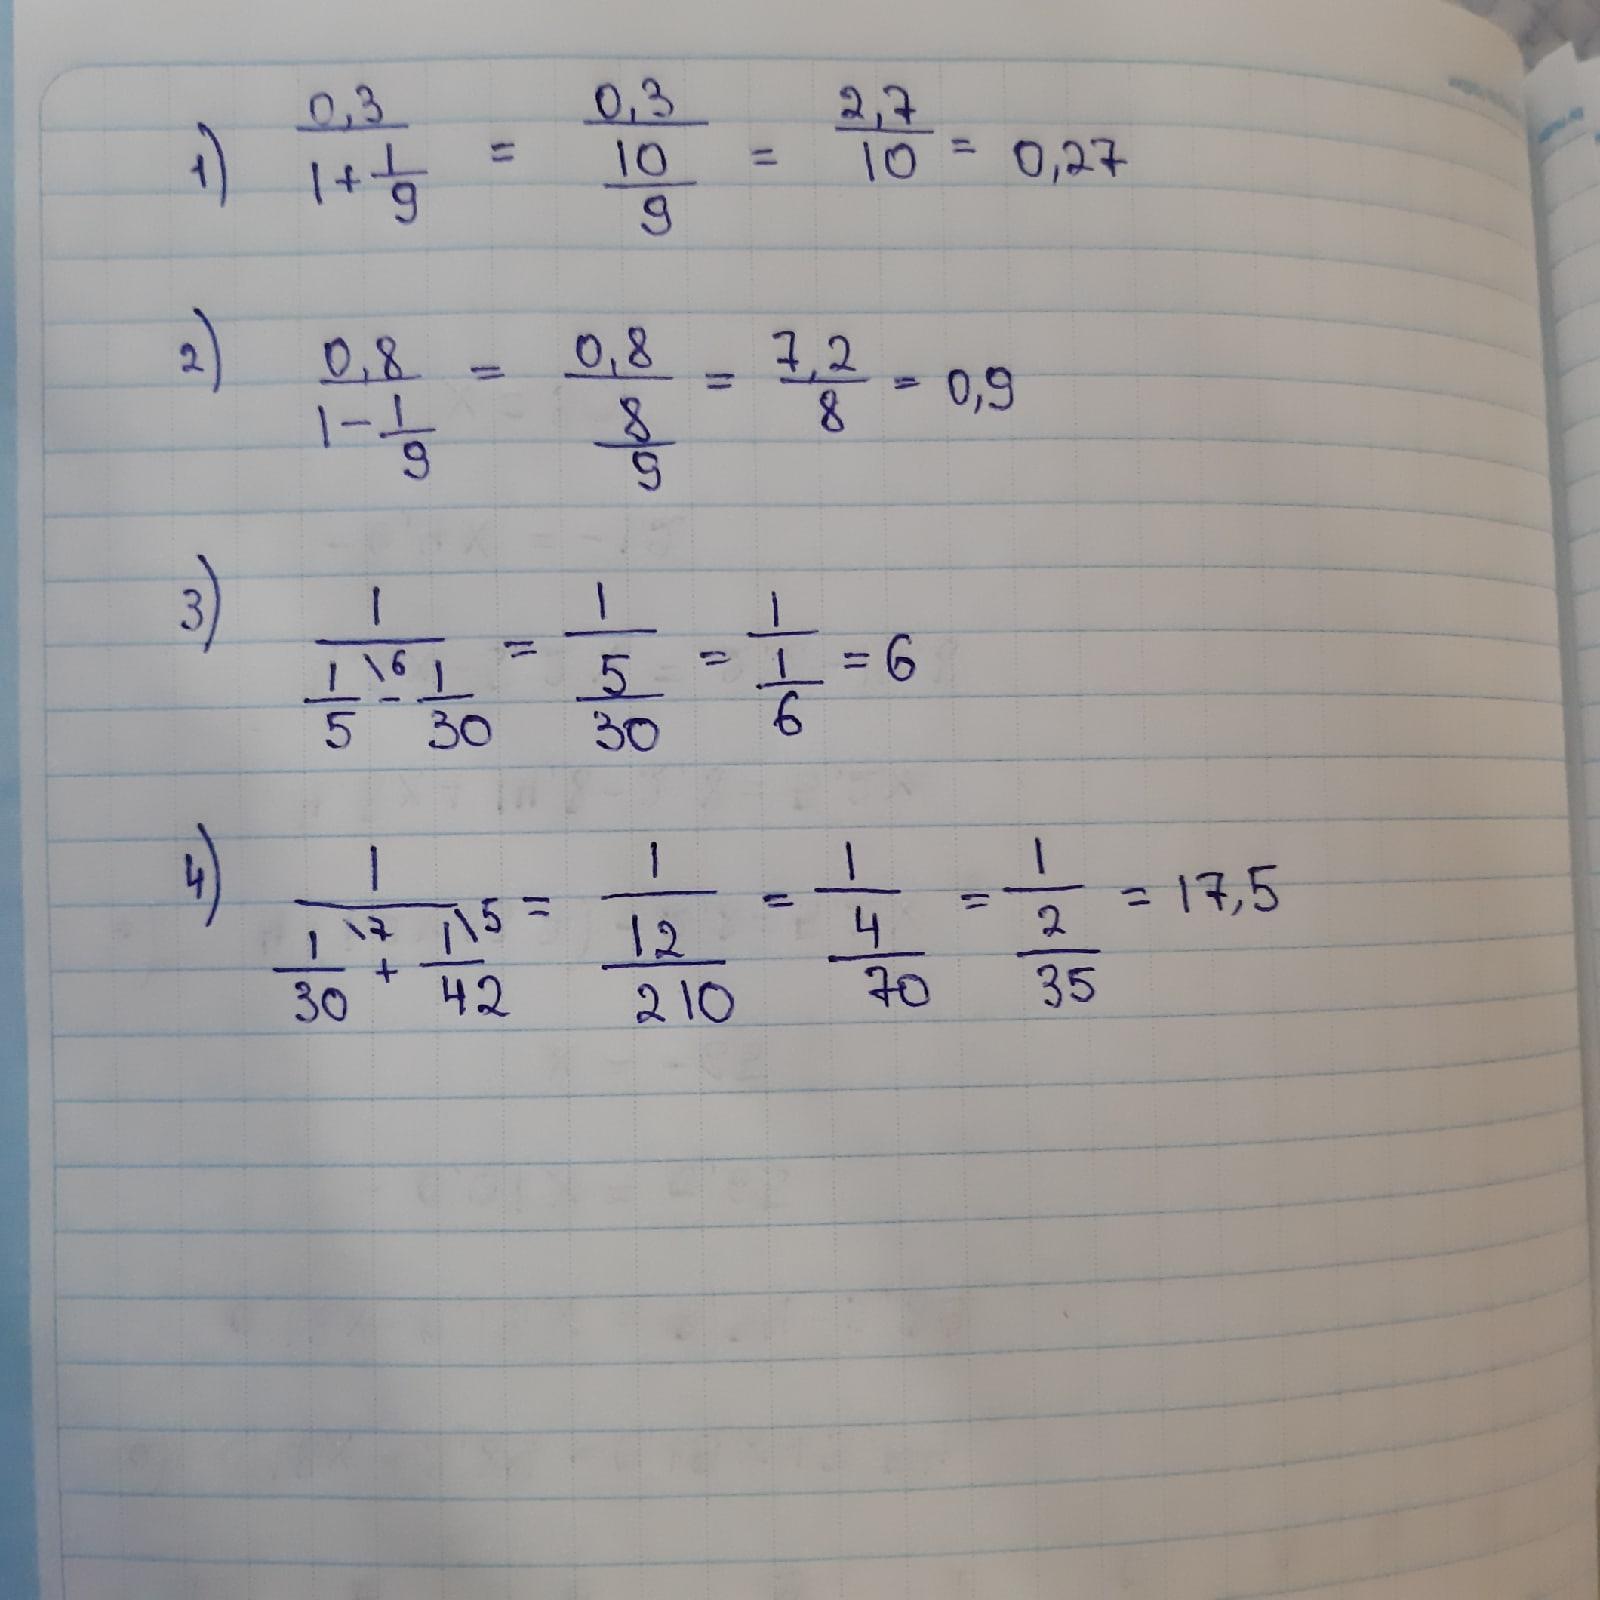 1) 0,3 / (1 + 1/9) = 0,3 / (10/9) = 2,7/10 = 0,27
2) 0,8 / (1 - 1/9) = 0,8 / (8/9) = 7,2/8 = 0,9
3) 1 / (1/5 \6 - 1/30) = 1 / (5/30) = 1 / (1/6) = 6
4) 1 / (1/30 \7 + 1/42 \5) = 1 / (12/210) = 1 / (4/70) = 1 / (2/35) = 17,5